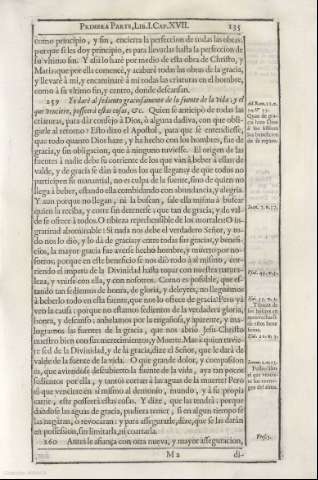 PRIMERA PARTE, LIB. I. CAP. XVII. 135
como principio, y fin, encierra la perfeccion de todas las obras:
porque si les doy principio, es para llevarlas hasta la perfeccion de
su vltimo fin. Y assi lo haré por medio de esta obra de Christo, y
Maria: que por ella comencé, y acabaré todas las obras de la gracia,
y llevaré à mi, y encaminaré à mi todas las criaturas en el hombre,
como à su vltimo fin, y centro, donde descansan.
259 Yo daré al sediento graciosamente de la fuente de la vida, y el
que venciere, posseerá estas cosas, &c. Quien se anticipó de todas las
criaturas, para dár consejo à Dios, ò alguna dadiva, con que obli-
garle al retorno? Esto dixo el Apostol, para que se entendiesse,
que todo quanto Dios haze, y ha hecho con los hombres, fue de
gracia, y sin obligacion, que à ninguno tuviesse. El origen de las
fuentes à nadie debe su corriente de los que ván à beber
valde, y de gracia se dán à todos los que llegan: y de que todos no
participen su manantial, no es culpa de la fuente, sino de quien no
llega à beber, estando ella combidando con abundancia, y alegria.
Y aun porque no llegan, ni la buscan, sale ella misma à buscar
quien la reciba, y corre sin detenerse:
se ofrece à todos. O tibieza reprehensible de los mortales! O in-
gratitud abominable! Si nada nos debe el verdadero Señor, y to-
do nos lo dió, y lo dá de gracia; y entre todas sus gracias, y benefi-
cios, la mayor gracia fue averse hecho hombre, y muerto por no-
sotros: porque en este beneficio se nos dió todo à si mismo, cor-
riendo el impetu de la Divinidad hasta topar con nuestra natura-
leza, y vnirse con ella, y con nosotros. Como es possible, que es-
tando tan sedientos de honra, de gloria, y deleytes, no lleguemos
à beberlo todo en esta fuente, que nos lo ofrece de gracia? Pero yá
veo la causa: porque no estamos sedientos de la verdadera gloria,
honra, y descanso: anhelamos por la engañosa, y aparente, y ma-
logramos las fuentes de la gracia, que nos abrió Jesu-Christo
nuestro bien con sus merecimientos, y Muerte. Mas à quien tuvie-
re sed de la Divinidad, y de la gracia, dize el Señor, que le dará de
valde de la fuente de la vida. O que grande dolor, y compassion
es, que aviendose descubierto la fuente de la vida, aya tan pocos
sedientos por ella, y tantos corran à las aguas de la muerte! Pero
el que venciere en si mismo al demonio, mundo, y à su propia
carne, este posseerá estas cosas. Y dize, que las tendrá: porque
dandose las aguas de gracia, pudiera temer, si en algun tiempo se
las negarán, ò revocarán: y para assegurarle, dize, que se las darán
en possession, sin limitarla, ni coartarla.
260 Antes le afiança con otra nueva, y mayor asseguracion,
M 2
di-